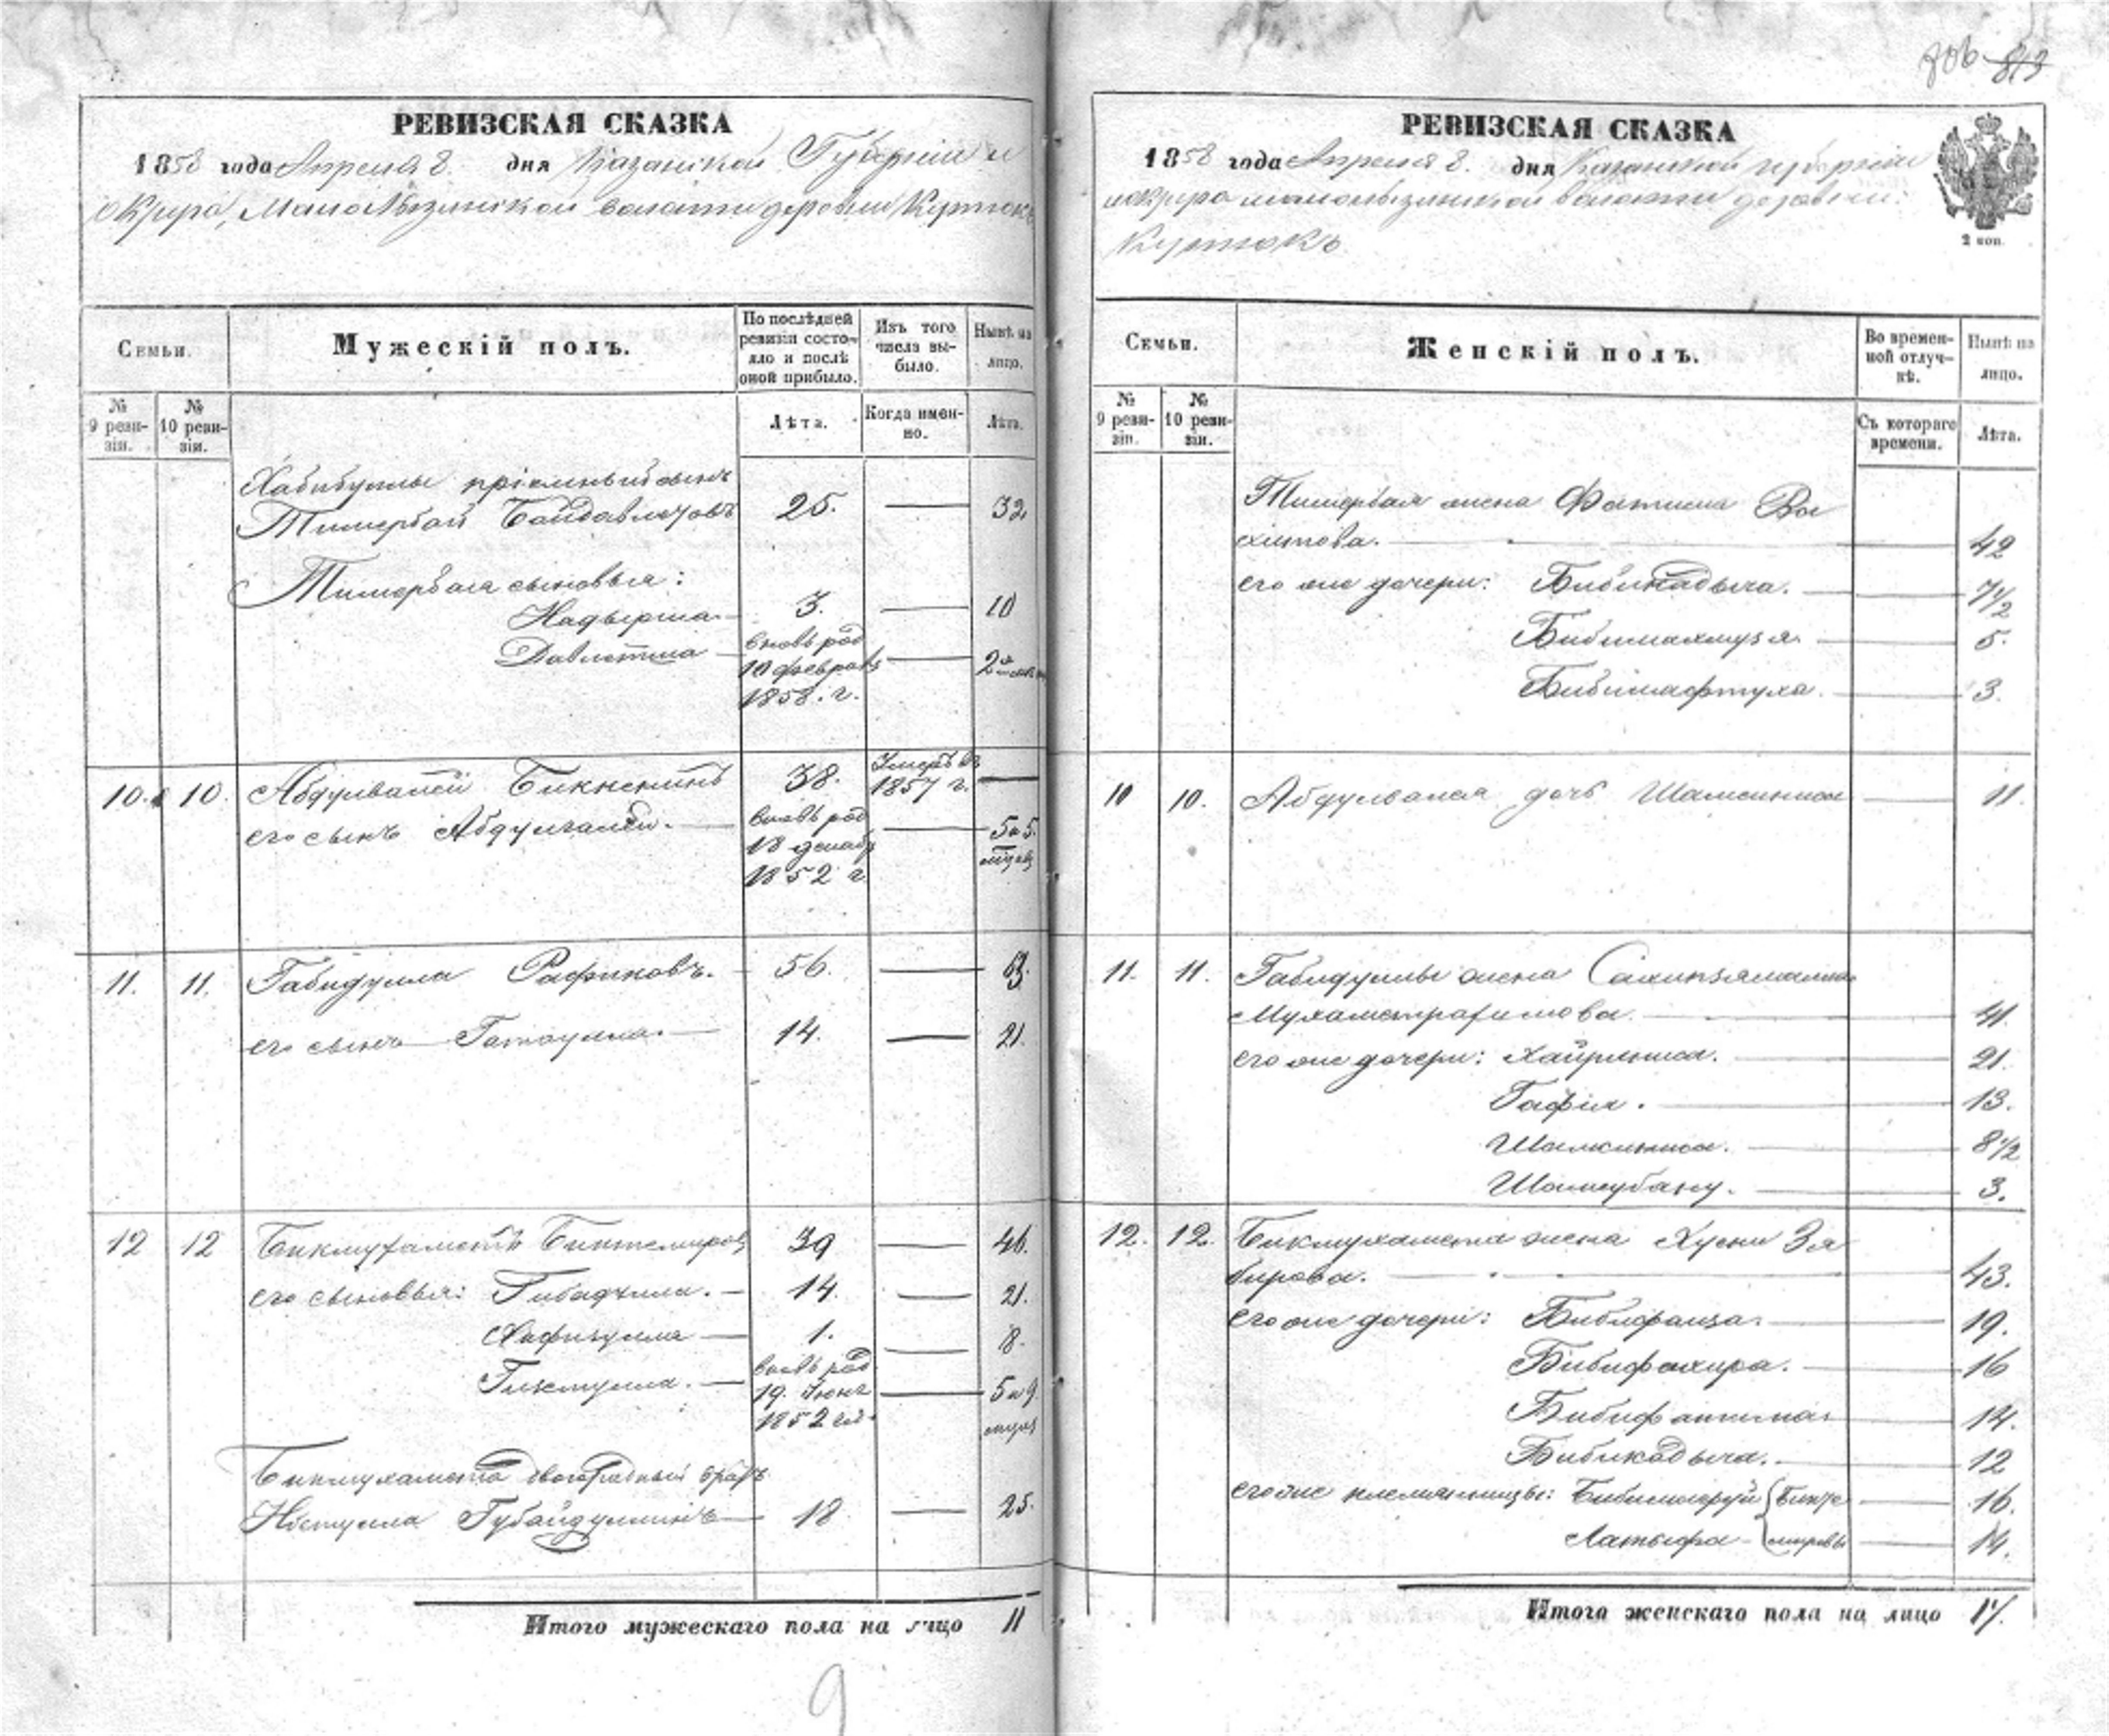 806 813
РЕВИЗСКАЯ СКАЗКА
1858 года Апреля 8. дня Казанской Губерніи и
округа, Малолызинской волости деревни Куртюкъ
Семьи.
Мужескій полъ.
По послѣдней ревизіи состояло и послѣ оной прибыло.
Изъ того числа выбыло.
Нынѣ на лицо.
№ 9 ревизіи.
№ 10 ревизіи.
Лѣта.
Когда именно.
Лѣта.
Хабибуллы пріемный сынъ
Тимербай Байдавлетовъ 25. 32
Тимербая сыновья:
Надырша 3. 10
Давлетша вновь род 10 февраля 1858. г. 2
10. 10. Абдулвалей Бикненинъ 38. Умеръ въ 1857 г.
его сынъ Абдулгалей. вновь род 18 декабр 1852 г. 5 и 5. мѣсяц
11. 11. Габидулла Рафиковъ. 56. 63.
его сынъ Гатаулла. 14. 21.
12 12 Бикмухаметъ Биктемировъ 39 46.
его сыновья: Гибадулла. 14. 21.
Хафизулла 1. 8.
вновь род 19. Іюня 1852 5 и 9.
Бикмухамета двоюродный братъ
Губайдуллинъ 18 25.
Итого мужескаго пола на лицо 11
9
РЕВИЗСКАЯ СКАЗКА
1858 года Апреля 8. дня Казанской губерніи
и округа малолызинской волости деревни
Куртюкъ
2 коп.
Семьи.
Женскій полъ.
Во временной отлучкѣ.
Нынѣ на лицо.
№ 9 ревизіи.
№ 10 ревизіи.
Съ котораго времени.
Лѣта.
Тимербая жена Фатима Ва
хитова. 42
его же дочери: Бибикадыча. 7 1/2
Бибимахмузя. 5.
Бибимафтуха. 3.
10 10. Абдулвалея дочь Шамсиниса 11.
11. 11. Габидуллы жена Сахипзямалла
Мухаметрахимова. 41.
его же дочери: Хайрлниса. 21.
Гафія. 13.
Шамсиниса. 8 1/2
Шамсубану. 3.
12. 12. Бикмухамета жена Хусни Зя
бирова. 43.
его же дочери: Бибифаиза. 19.
Бибифахира. 16
Бибифатима 14.
Бибикадыча. 12
его же племянницы: Бикте 16.
Латыфа мировы 14.
Итого женскаго пола на лицо 17.